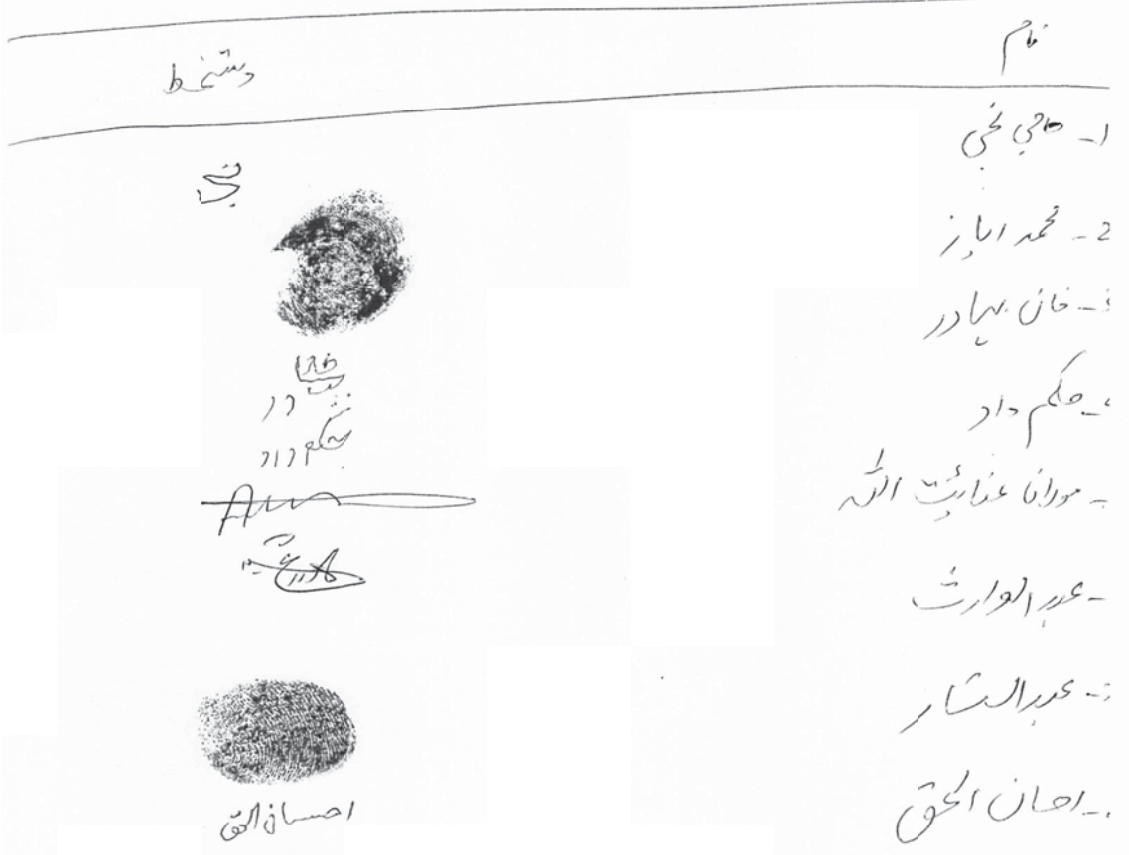 نام دستخط
1- حاجی نجی
نجی
2- محمد ایاز
خان بہادر
خان بہادر
حکم داد
حکم داد
مولانا عنایت اللہ
عبدالوارث
عبدالستار
احسان الحق
احسان الحق